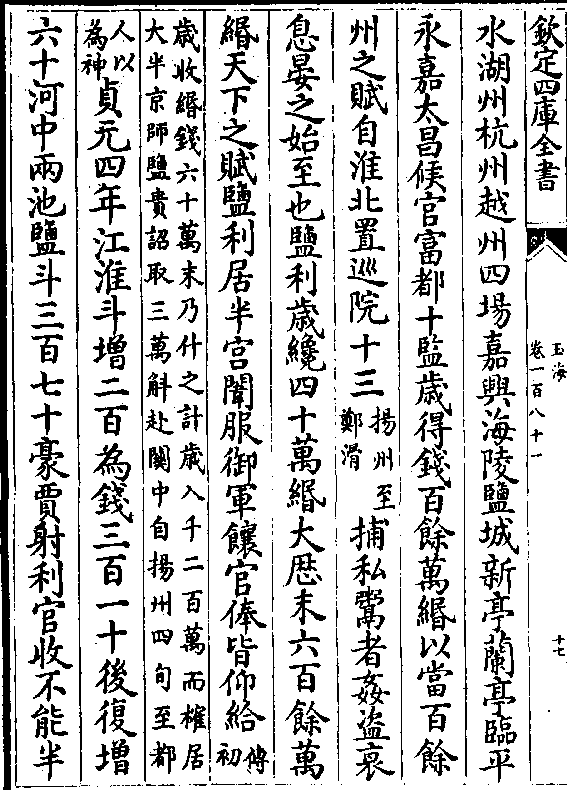 欽定四庫全書
玉海
卷一百八十一
十七
水湖州杭州越州四場嘉興海陵鹽城新亭蘭亭臨平
永嘉太昌侯官富都十監歳得錢百餘萬緡以當百餘
州之賦自淮北置巡院十三揚州至鄭滑捕私鬻者姦盜衰
息晏之始至也鹽利歳纔四十萬緡大厯末六百餘萬
緡天下之賦鹽利居半宫闈服御軍饟官俸皆仰給傳初
歳收緡錢六十萬末乃什之計歳入千二百萬而榷居
大半京師鹽貴詔取三萬斛赴關中自揚州四旬至都
人以為神貞元四年江淮斗增二百為錢三百一十後復增
六十河中兩池鹽斗三百七十豪賈射利官收不能半